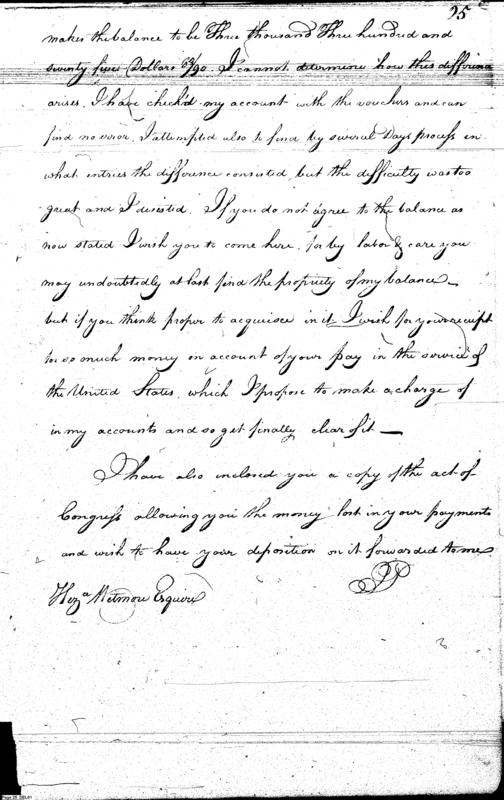 25
makes the balance to be Three thousand Three hundred and
seventy five Dollars 63/90. I cannot determine how this difference
arises, I have check'd my account with the vouchers and can
find no error, I attempted also to find by several Days process in
what entries the difference consisted, but the difficulty was too
great and I desisted. If you do not agree to the balance as
now stated I wish you to come here, for by labor & care you
may undoubtedly at last find the propriety of my balance—
but if you think proper to acquiesce in it I wish for your receipt
for so much money on account of your pay in the service of
the United States, which I propose to make a charge of
in my accounts and so get finally clear of it —
I have also inclosed you a copy of the act of
Congress allowing you the money lost in your payments
and wish to have your deposition on it forwarded to me
JP
Heza Wetmore Esquire